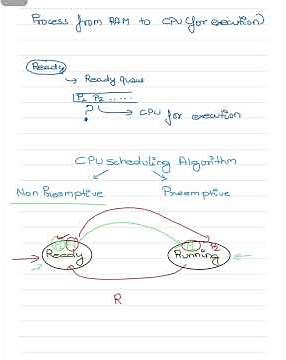 Process from RAM to CPU (for execution)
Ready
→ Ready queue
P1 P2 .....
? → CPU for execution
CPU scheduling Algorithm
Non Preemptive Preemptive
Ready Running P2
R